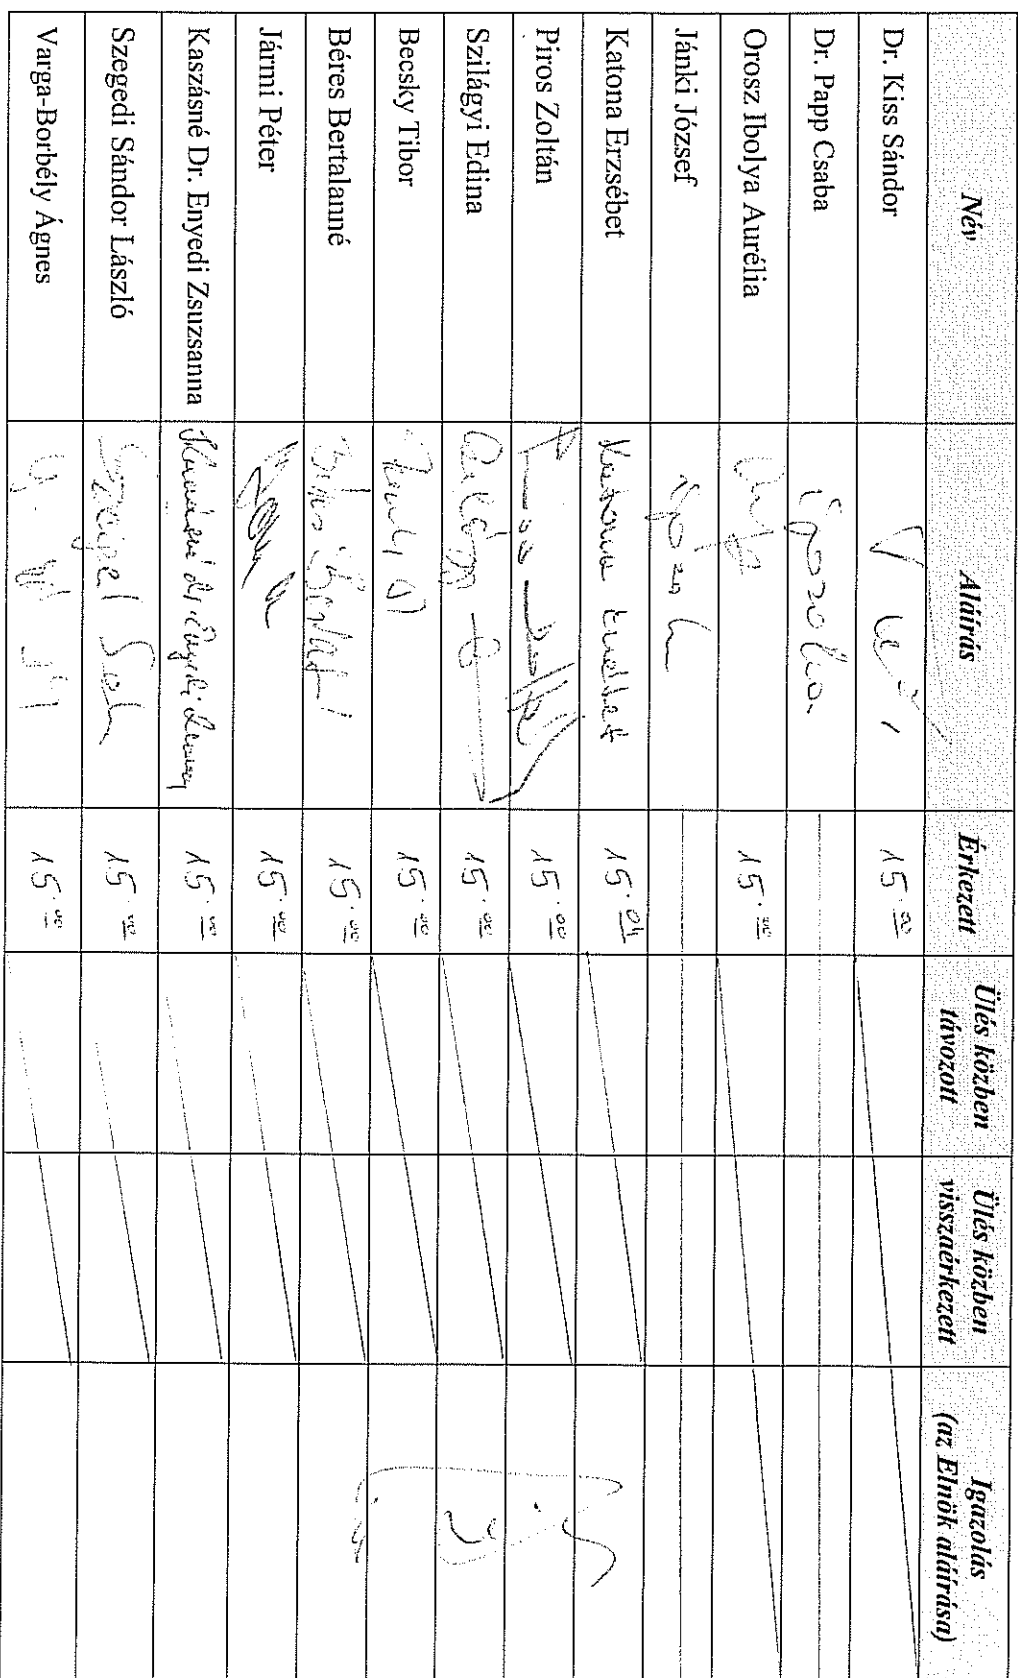 Név Aláírás Érkezett Ülés közben távozott Ülés közben visszaérkezett Igazolás (az Elnök aláírása)
Dr. Kiss Sándor 15.00
Dr. Papp Csaba igazolva
Orosz Ibolya Aurélia 15.00
Jánki József
Katona Erzsébet Katona Erzsébet 15.04
Piros Zoltán 15.00
Szilágyi Edina 15.00
Becsky Tibor 15.00
Béres Bertalanné 15.00
Jármi Péter 15.00
Kaszásné Dr. Enyedi Zsuzsanna 15.00
Szegedi Sándor László 15.00
Varga-Borbély Ágnes 15.00